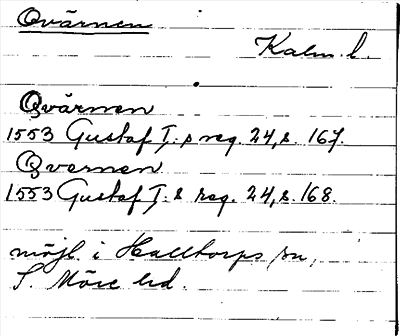 Qvärnen
Kalm. l.
Qvärnen
1553 Gustaf I:s reg. 24, s. 167.
Qvernen
1553 Gustaf I:s reg. 24, s. 168.
möjl. i Halltorps sn,
S. Möre hd.